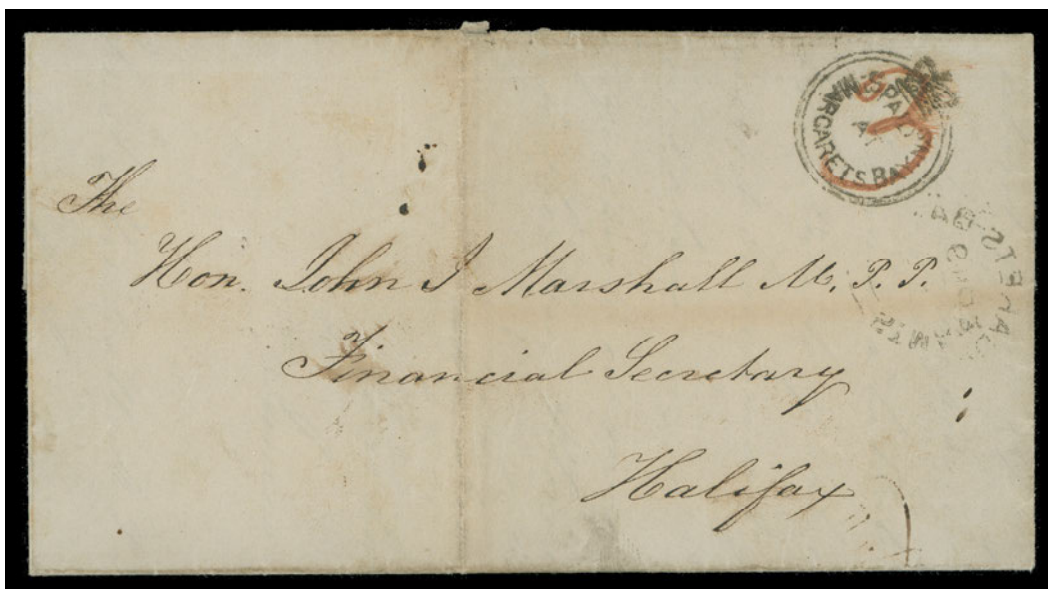 PAID
AT
MARGARETS BAY
The
Hon. John J Marshall M. P. P.
Financial Secretary
Halifax